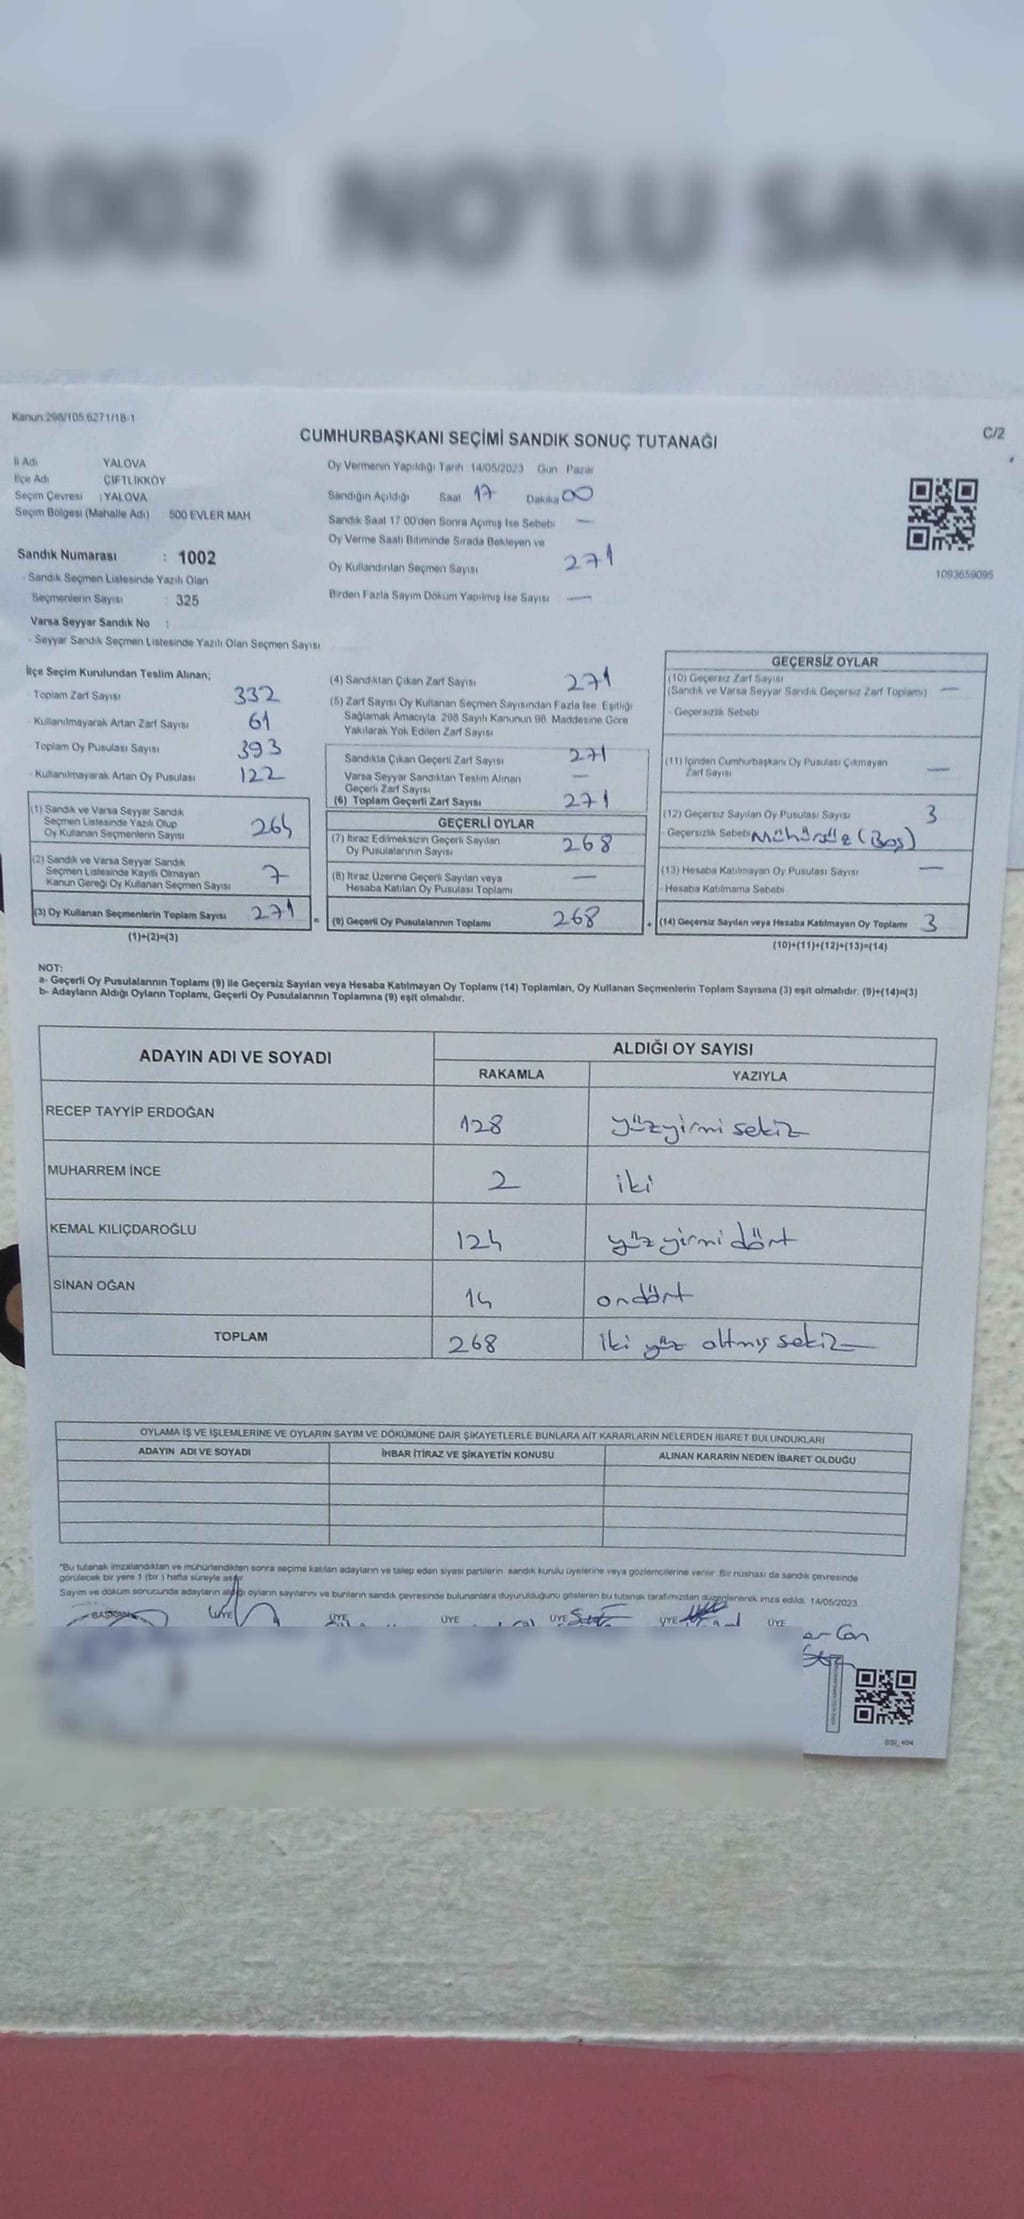 1002 NO'LU SANI
Kanun:298/105,6271/18-1
CUMHURBAŞKANI SEÇİMİ SANDIK SONUÇ TUTANAĞI
C/2
İli Adı YALOVA
İlçe Adı ÇİFTLİKKÖY
Seçim Çevresi : YALOVA
Seçim Bölgesi (Mahalle Adı) 500 EVLER MAH
Sandık Numarası : 1002
- Sandık Seçmen Listesinde Yazılı Olan
Seçmenlerin Sayısı : 325
Varsa Seyyar Sandık No :
- Seyyar Sandık Seçmen Listesinde Yazılı Olan Seçmen Sayısı
Oy Vermenin Yapıldığı Tarih : 14/05/2023 Gün : Pazar
Sandığın Açıldığı Saat 17 Dakika 00
Sandık Saat 17.00'den Sonra Açımış İse Sebebi —
Oy Verme Saati Bitiminde Sırada Bekleyen ve
Oy Kullandırılan Seçmen Sayısı 271
Birden Fazla Sayım Döküm Yapılmış İse Sayısı —
1093659095
İlçe Seçim Kurulundan Teslim Alınan;
- Toplam Zarf Sayısı 332
- Kullanılmayarak Artan Zarf Sayısı 61
Toplam Oy Pusulası Sayısı 393
- Kullanılmayarak Artan Oy Pusulası 122
(1) Sandık ve Varsa Seyyar Sandık
Seçmen Listesinde Yazılı Olup
Oy Kullanan Seçmenlerin Sayısı 264
(2) Sandık ve Varsa Seyyar Sandık
Seçmen Listesinde Kayıtlı Olmayan
Kanun Gereği Oy Kullanan Seçmen Sayısı 7
(3) Oy Kullanan Seçmenlerin Toplam Sayısı 271
(1)+(2)=(3)
(4) Sandıktan Çıkan Zarf Sayısı 271
(5) Zarf Sayısı Oy Kullanan Seçmen Sayısından Fazla İse, Eşitliği
Sağlamak Amacıyla, 298 Sayılı Kanunun 98. Maddesine Göre
Yakılarak Yok Edilen Zarf Sayısı
Sandıkta Çıkan Geçerli Zarf Sayısı 271
Varsa Seyyar Sandıktan Teslim Alınan
Geçerli Zarf Sayısı —
(6) Toplam Geçerli Zarf Sayısı 271
GEÇERLİ OYLAR
(7) İtiraz Edilmeksizin Geçerli Sayılan
Oy Pusulalarının Sayısı 268
(8) İtiraz Üzerine Geçerli Sayılan veya
Hesaba Katılan Oy Pusulası Toplamı —
= (9) Geçerli Oy Pusulalarının Toplamı 268
GEÇERSİZ OYLAR
(10) Geçersiz Zarf Sayısı
(Sandık ve Varsa Seyyar Sandık Geçersiz Zarf Toplamı) —
- Geçersizlik Sebebi
(11) İçinden Cumhurbaşkanı Oy Pusulası Çıkmayan
Zarf Sayısı —
(12) Geçersiz Sayılan Oy Pusulası Sayısı 3
- Geçersizlik Sebebi Mühürsüz (Boş)
(13) Hesaba Katılmayan Oy Pusulası Sayısı —
- Hesaba Katılmama Sebebi
+ (14) Geçersiz Sayılan veya Hesaba Katılmayan Oy Toplamı 3
(10)+(11)+(12)+(13)=(14)
NOT:
a- Geçerli Oy Pusulalarının Toplamı (9) ile Geçersiz Sayılan veya Hesaba Katılmayan Oy Toplamı (14) Toplamları, Oy Kullanan Seçmenlerin Toplam Sayısına (3) eşit olmalıdır. (9)+(14)=(3)
b- Adayların Aldığı Oyların Toplamı, Geçerli Oy Pusulalarının Toplamına (9) eşit olmalıdır.
ADAYIN ADI VE SOYADI
ALDIĞI OY SAYISI
RAKAMLA YAZIYLA
RECEP TAYYİP ERDOĞAN 128 yüzyirmi sekiz
MUHARREM İNCE 2 iki
KEMAL KILIÇDAROĞLU 124 yüz yirmi dört
SİNAN OĞAN 14 ondört
TOPLAM 268 iki yüz altmış sekiz
OYLAMA İŞ VE İŞLEMLERİNE VE OYLARIN SAYIM VE DÖKÜMÜNE DAİR ŞİKAYETLERLE BUNLARA AİT KARARLARIN NELERDEN İBARET BULUNDUKLARI
ADAYIN ADI VE SOYADI İHBAR İTİRAZ VE ŞİKAYETİN KONUSU ALINAN KARARIN NEDEN İBARET OLDUĞU
"Bu tutanak imzalandıktan ve mühürlendikten sonra seçime katılan adayların ve talep eden siyasi partilerin sandık kurulu üyelerine veya gözlemcilerine verilir. Bir nüshası da sandık çevresinde
görülecek bir yere 1 (bir) hafta süreyle asılır.
Sayım ve döküm sonucunda adayların aldığı oyların sayılarını ve bunların sandık çevresinde bulunanlara duyurulduğunu gösteren bu tutanak tarafımızdan düzenlenerek imza edildi. 14/05/2023
BAŞKAN ÜYE ÜYE ÜYE ÜYE ÜYE ÜYE
Can
SSI_404